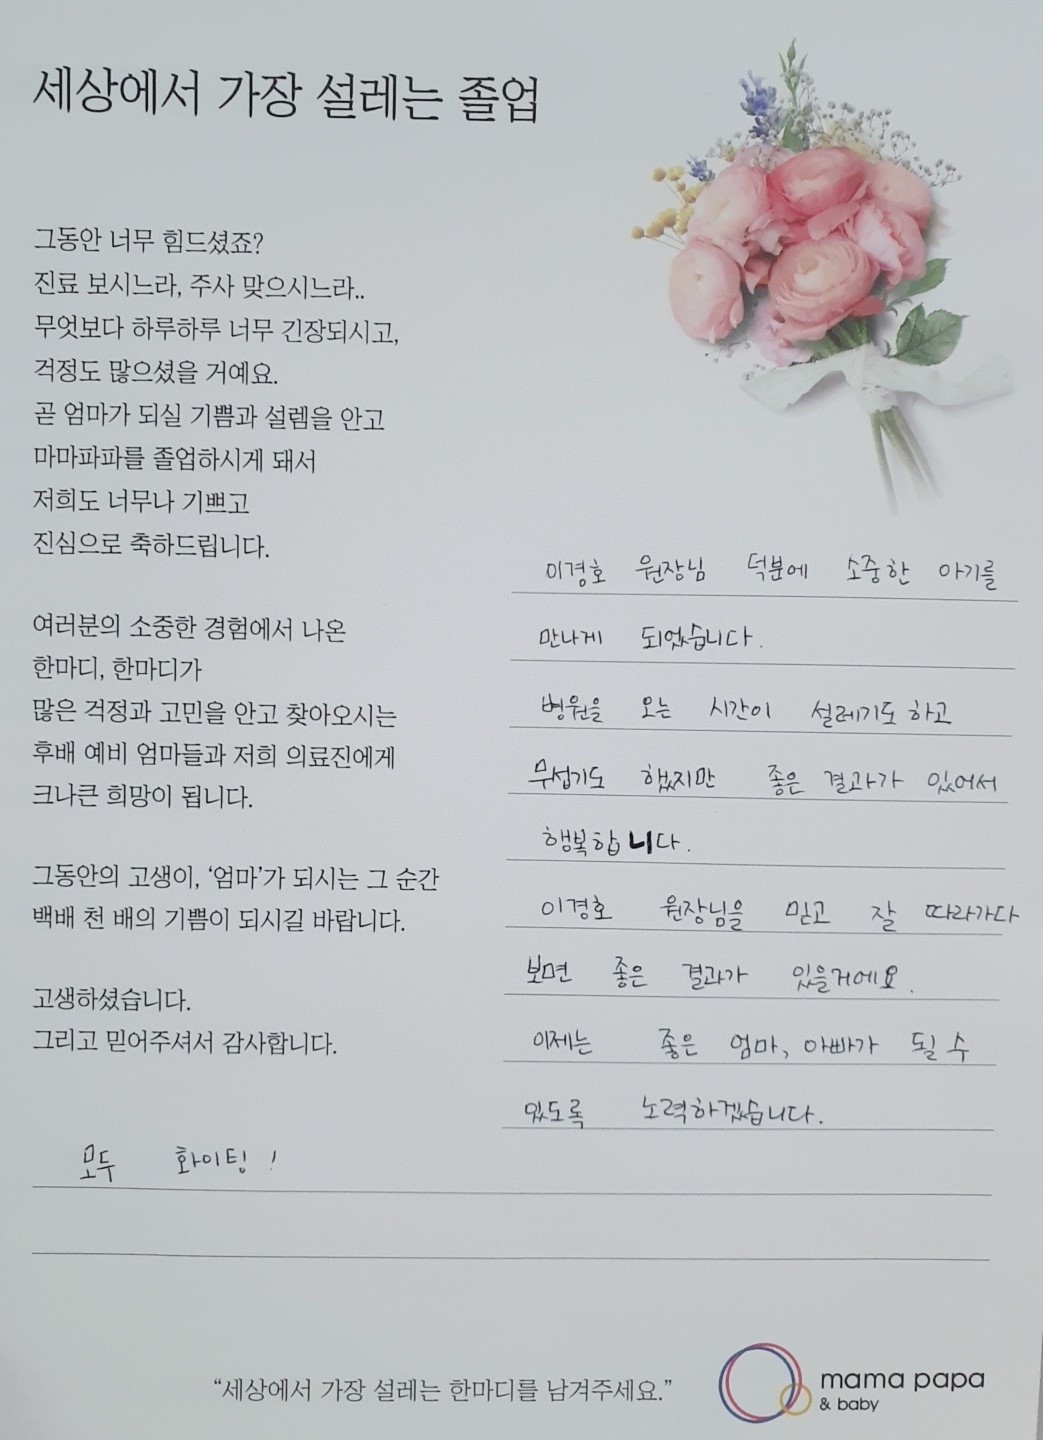 세상에서 가장 설레는 졸업
그동안 너무 힘드셨죠?
진료 보시느라, 주사 맞으시느라..
무엇보다 하루하루 너무 긴장되시고,
걱정도 많으셨을 거예요.
곧 엄마가 되실 기쁨과 설렘을 안고
마마파파를 졸업하시게 돼서
저희도 너무나 기쁘고
진심으로 축하드립니다.
여러분의 소중한 경험에서 나온
한마디, 한마디가
많은 걱정과 고민을 안고 찾아오시는
후배 예비 엄마들과 저희 의료진에게
크나큰 희망이 됩니다.
그동안의 고생이, ‘엄마’가 되시는 그 순간
백배 천 배의 기쁨이 되시길 바랍니다.
고생하셨습니다.
그리고 믿어주셔서 감사합니다.
이경호 원장님 덕분에 소중한 아기를
만나게 되었습니다.
병원을 오는 시간이 설레기도 하고
무섭기도 했지만 좋은 결과가 있어서
행복합니다.
이경호 원장님을 믿고 잘 따라가다
보면 좋은 결과가 있을거에요.
이제는 좋은 엄마, 아빠가 될 수
있도록 노력하겠습니다.
모두 화이팅!
“세상에서 가장 설레는 한마디를 남겨주세요.”
mama papa
& baby